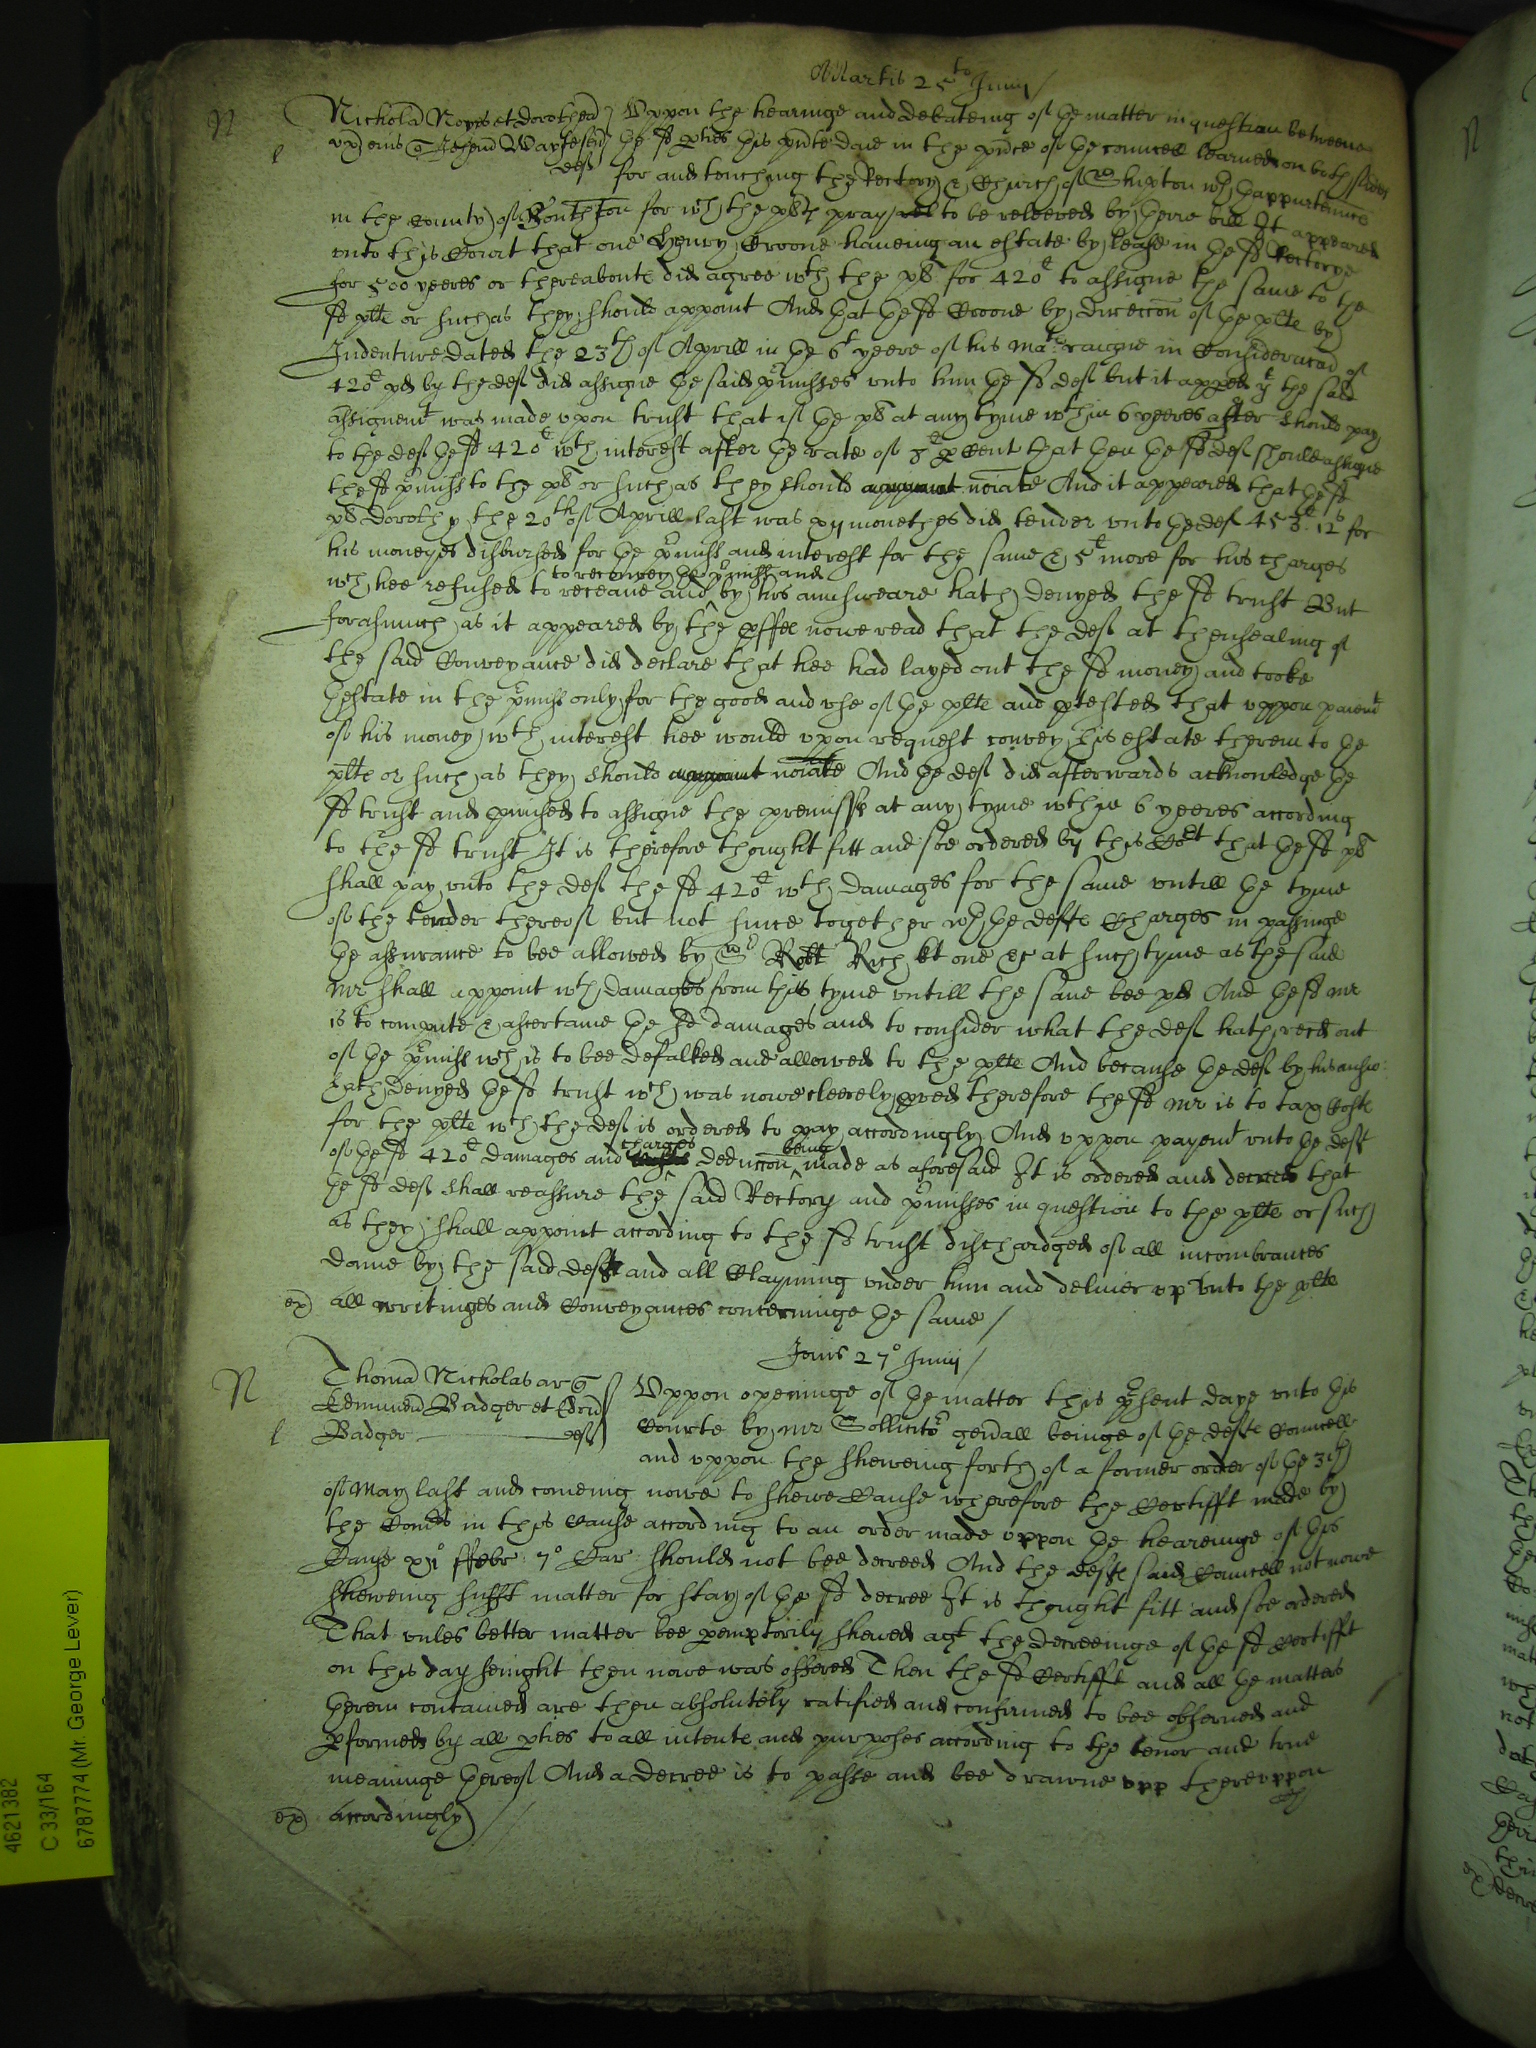 Martis 25to Junij
N Nicholas Noyes et Dorothea Uppon the hearinge and debateing of the matter in question betweene
ux eius the sd pties this pnte daie in the pnce of the councell learned on both sides
def for and touching the Rectory & Church of Shipton wth thappurtennces
in the County of South'ton for wch the plt pray to be releeved by theire bill It appeared
unto this Court that one Henry Croone haveing an estate by lease in the sd Rectorye
for 500 yeeres or thereaboute did agree wth the plt for 420l to assigne the same to the
sd plte or such as they should appoint And that the sd Croone by direccon of the plte by
Indenture dated the 23th of Aprill in the 6t yeere of his Mats raigne in Consideracon of
420l pd by the def did assigne the said pmisses unto him the sd def but it appeed yt the said
assignemt was made upon trust that if the plt at any tyme wthin 6 yeeres after should pay
to the def the sd 420l wth interest after the rate of 8l p Cent that then the sd def should assigne
the sd pmiss to the plt or such as they should noiate And it appeared that the sd
plt Dorothy the 20th of Aprill last was xij monethes did tender unto the def 453l 12s for
his moneyes disbursed for the pmiss and interest for the same & 5l more for his charges
to reconvey the pmiss and
wch hee refused to receave and by his aunsweare hath denyed the sd trust But
forasmuch as it appeared by the pffes nowe read that the def at thensealing of
the said Conveyance did declare that hee had layed out the sd money and tooke
thestate in the pmiss only for the good and use of the plte and ptested that uppon paiemt
of his money wth interest hee would upon request convey his estate therein to the
plte or such as they should noiate And the def did afterwards acknowledge the
sd trust and pmised to assigne the premisses at any tyme wthin 6 yeeres according
to the sd trust It is therefore thought fitt and soe ordered by this Cort that the sd plt
shall pay unto the def the sd 420l wth damages for the same untill the tyme
of the tender thereof but not since together wth the defte Charges in passinge
the assurance to bee allowed by Sr Robt Rich kt one &c at such tyme as the said
Mr shall appoint wth damages from this tyme untill the same bee pd And the sd Mr
is to compute & ascertaine the sd damages and to consider what the def hath recd out
of the pmiss wch is to bee defalked and allowed to the plte And because the def by his answ:
hath denyed the sd trust wch was nowe cleerely pved therefore the sd Mr is to tax Coste
for the plte wch the def is ordered to pay accordingly And uppon payemt unto the deft
charges being
of the sd 420l damages and deduccon made as aforesaid It is ordered and decreed that
the sd def shall reassure the said Rectory and pmisses in question to the plte or such
as they shall appoint according to the sd trust dischardged of all incombrances
donne by the said def and all Clayming under him and deliver upp unto the plte
ex all writinges and Conveyances concerninge the same
Jovis 27o Junij
N Thomas Nicholas ar Uppon openinge of the matter this psent daye unto this
Edmund Badger et Courte by Mr Sollicitor genrall beinge of the defte Councell
Badger def and uppon the sheweing forth of a former order of the 31th
of May last and comeing nowe to shewe Cause wherefore the Certifft made by
the Comrs in this Cause according to an order made uppon the heareinge of this
Cause xijo ffebr: 7o Car should not bee decreed And the defte said Councell not nowe
sheweing sufft matter for stay of the sd decree It is thought fitt and soe ordered
That unles better matter bee pemptorily shewed agt the decreeinge of the sd Certifft
on this day sennight then nowe was offered Then the sd Certifft and all the matters
therein contained are then absolutely ratified and confirmed to bee observed and
pformed by all pties to all intente and purposes according to the tenor and true
meaninge thereof And a decree is to passe and bee drawne upp thereuppon
ex accordingly
4621382
C 33/164
6787774 (Mr. George Lever)